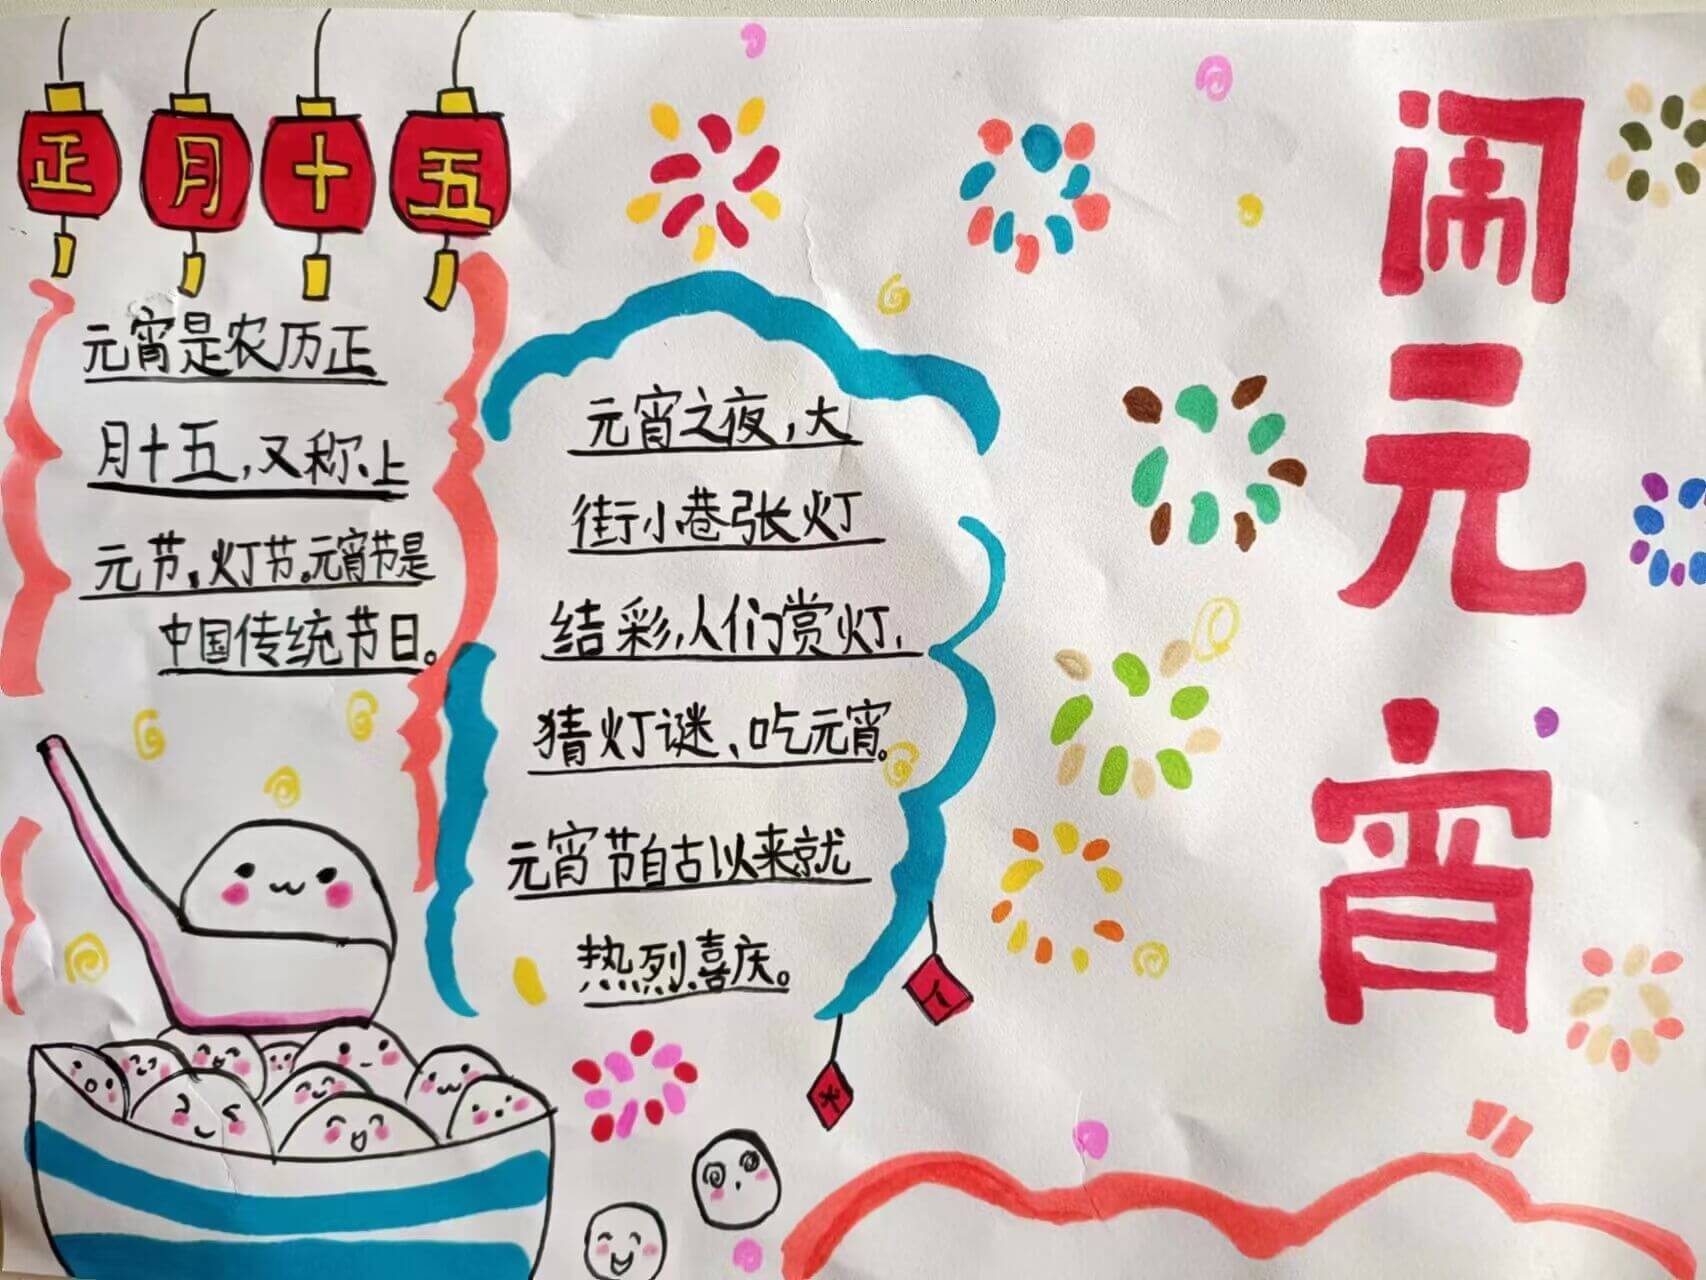 正月十五
闹元宵
元宵是农历正
月十五,又称、上
元节,灯节。元宵节是
中国传统节日。
元宵之夜,大
街小巷张灯
结彩,人们赏灯,
猜灯谜、吃元宵。
元宵节自古以来就
热烈喜庆。